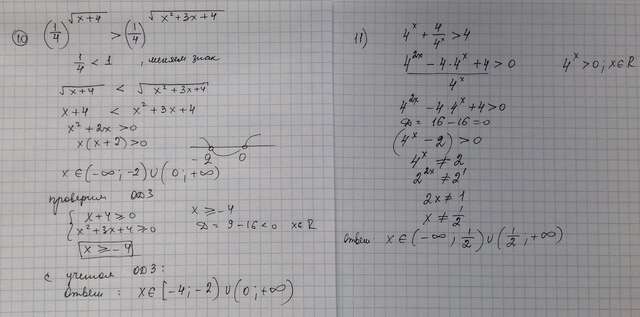 10) (1/4)^√(x+4) > (1/4)^√(x²+3x+4)
1/4 < 1, меняем знак
√(x+4) < √(x²+3x+4)
x+4 < x²+3x+4
x²+2x>0
x(x+2)>0
-2 0
x∈(-∞;-2)∪(0;+∞)
проверим ОДЗ
{ x+4≥0 x≥-4
x²+3x+4≥0 D = 9-16<0 x∈R
x≥-4
с учетом ОДЗ:
Ответ: x∈[-4;-2)∪(0;+∞)
11) 4^x + 4/4^x > 4
(4^2x - 4·4^x + 4)/4^x > 0 4^x>0; x∈R
4^2x - 4 4^x + 4>0
D = 16-16=0
(4^x - 2) > 0
4^x ≠ 2
2^2x ≠ 2^1
2x ≠ 1
x ≠ 1/2
ответ x∈(-∞; 1/2)∪(1/2; +∞)